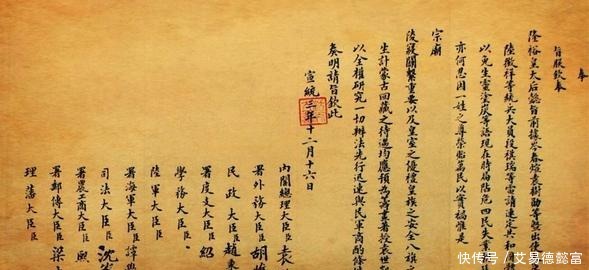 奏
旨朕欽奉
隆裕皇太后懿旨前據岑春煊袁樹勛等暨出使
陸徵祥等統兵大員段祺瑞等電請速定共和
以免生靈塗炭等語現在時局阽危四民失業
亦何忍因一姓之尊榮貽萬民以實禍惟是
宗廟
陵寢關繫重要以及皇室之優禮皇族之安全八旗之
生計蒙古回藏之待遇均應預為籌畫著授袁世
以全權研究一切辦法先行迅速與民軍商酌條
奏明請旨欽此
宣統三年十二月十六日
內閣總理大臣臣袁
署外務大臣臣胡
民政大臣臣趙秉
署度支大臣臣紹
學務大臣臣
陸軍大臣臣
署海軍大臣臣譚
司法大臣臣沈
署農工商大臣臣熙
署郵傳大臣臣梁
理藩大臣臣
快传号/艾易德懿富